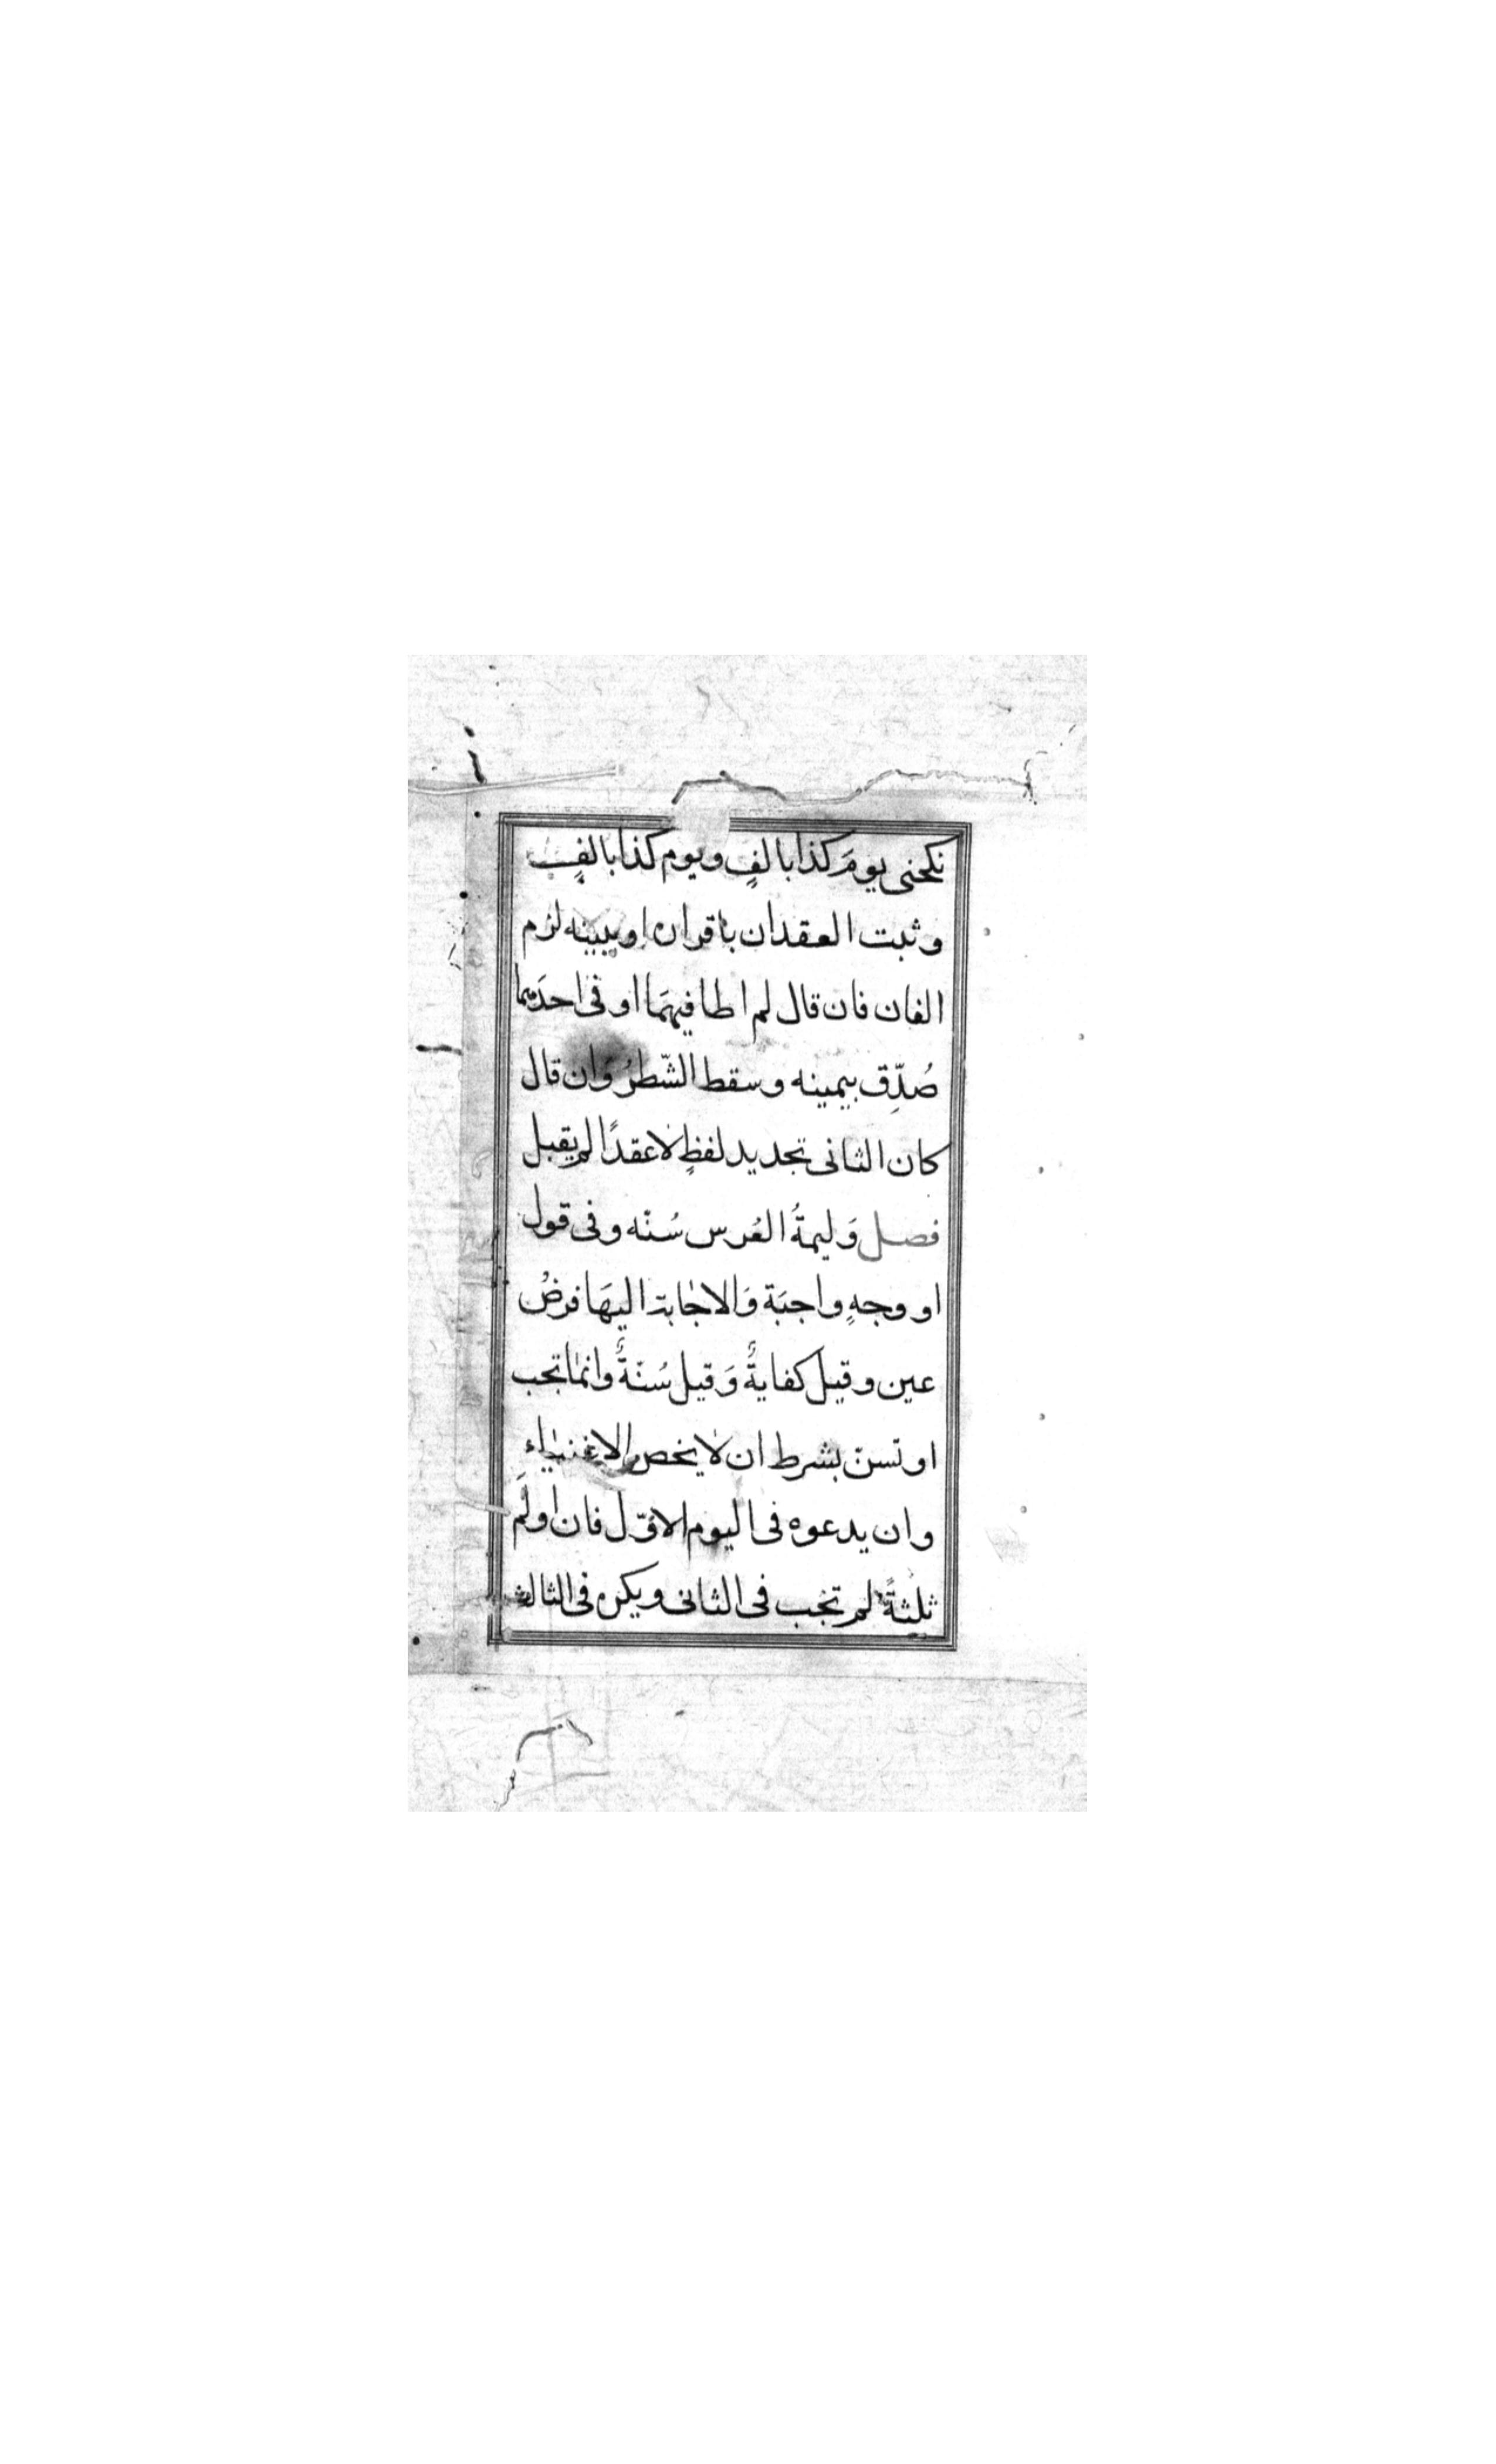 نكحنى يومَ كذا بالفٍ ويوم كذا بالفٍ
وثبت العقدان باقراره او ببينه لزم
الفان فان قال لم اطا فيهمَا او فى احدَيهما
صُدِّق بيمينه وسقط الشّطرُ وَان قال
كان الثانى تجديد لفظٍ لا عقدًا لم يقبل
فصل وَليمةُ العُرس سُنّه وفى قول
او وجهٍ واجبَة وَالاجابة اليهَا فرضُ
عين وقيل كفايةٌ وَقيل سُنّةٌ وانما تجب
او تسنّ بشرط ان لا يخص الاغنياء
وان يدعوه فى اليوم الاوّل فان اولَم
ثلثةً لم تجب فى الثانى ويكره فى الثالث